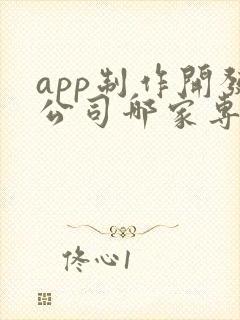 app制作開發
公司哪家專
佟心1